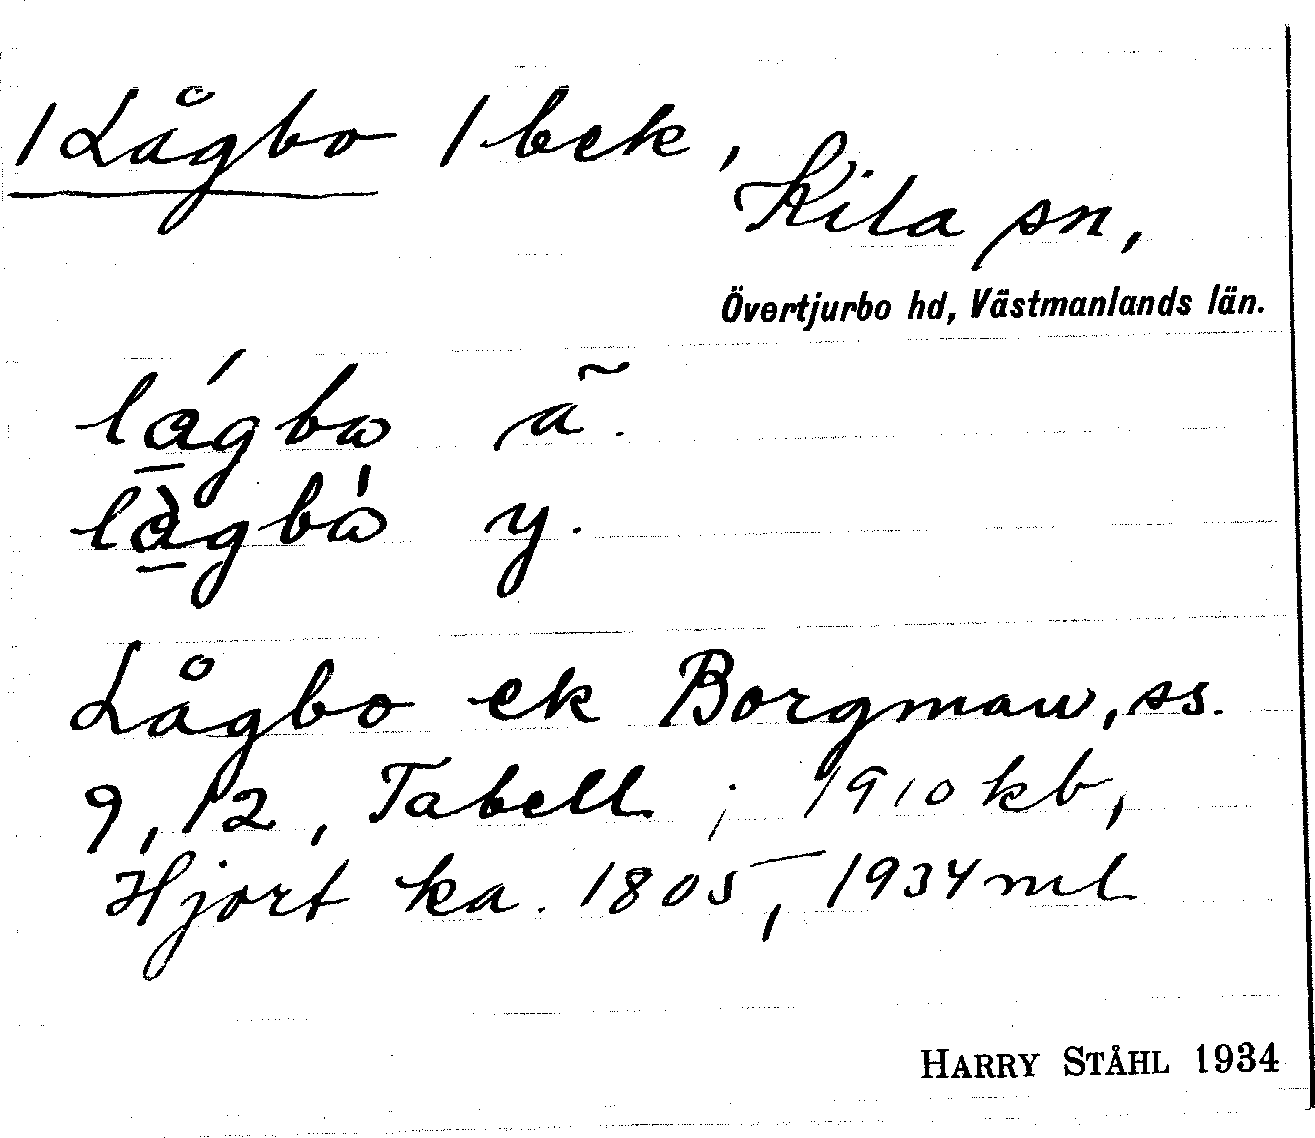 /Lågbo / bek,
Kila sn,
Övertjurbo hd, Västmanlands län.
lågbω ã.
lågbω y.
Lågbo ek Borgman, ss.
9, 12, Tabell; 1910 kb,
Hjort ka. 1805, 1934 ml
HARRY STÅHL 1934